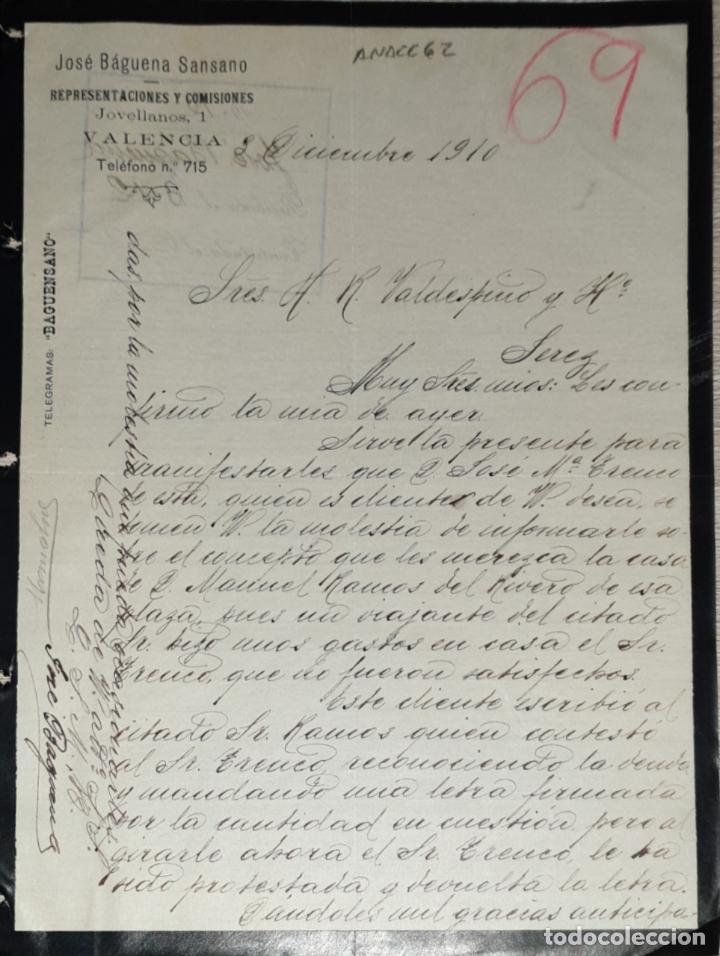 José Báguena Sansano
REPRESENTACIONES Y COMISIONES
Jovellanos, 1
VALENCIA
Teléfono n.º 715
TELEGRAMAS: "BAGUENSANO"
ANACE62
69
3 Diciembre 1910
Sres. A. R. Valdespino y Hº
Jerez
Muy Sres. mios: Les con-
firmo la mia de ayer.
Sirve la presente para
manifestarles que D. José Mª Trenco
de esta, quien es cliente de V. desea, se
tomen V. la molestia de informarle so-
bre el concepto que les merezca la casa
de D. Manuel Ramos del Rivero de esa
plaza, pues un viajante del citado
Sr. hizo unos gastos en casa el Sr.
Trenco, que no fueron satisfechos.
Este cliente escribió al
citado Sr. Ramos quien contestó
al Sr. Trenco, reconociendo la deuda
y mandando una letra firmada
por la cantidad en cuestión, pero al
girarle ahora el Sr. Trenco, le ha
sido protestada y devuelta la letra.
Dándoles mil gracias anticipa-
das, por la molestia que pueda
queda de V.
José Báguena
todocoleccion.net